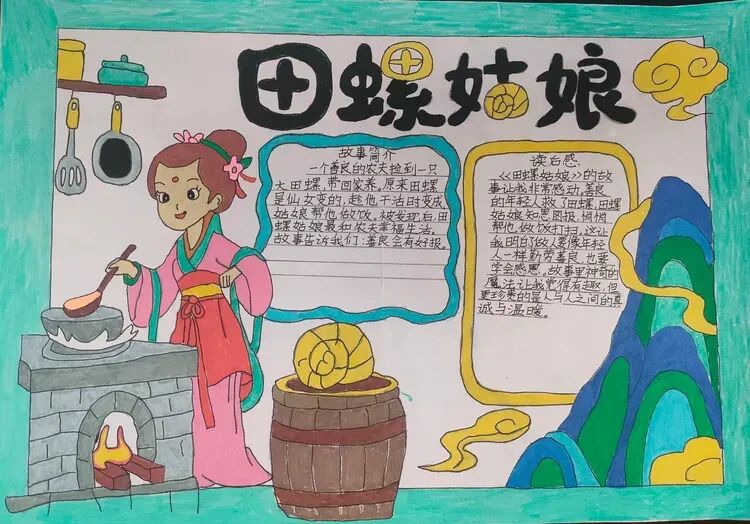 田螺姑娘
故事简介
一个善良的农夫捡到一只
大田螺，带回家养。原来田螺
是仙女变的，趁他干活时变成
姑娘帮他做饭。被发现后，田
螺姑娘最和农夫幸福生活。
故事告诉我们：善良会有好报。
读后感
《田螺姑娘》的故
事让我非常感动，善良
的年轻人救了田螺，田螺
姑娘知恩图报，悄悄
帮他做饭打扫。这让
我明白做人要像年轻
人一样勤劳善良，也要
学会感恩。故事里神奇的
魔法让我觉得有趣，但
更珍贵的是人与人之间的真
诚与温暖。